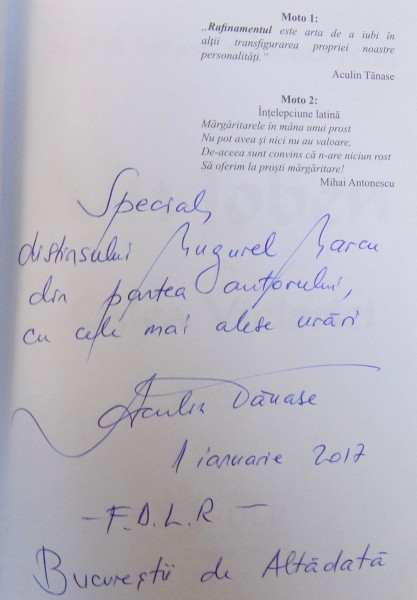 Moto 1:
„Rafinamentul este arta de a iubi în
alții transfigurarea propriei noastre
personalități.”
Aculin Tănase
Moto 2:
Înțelepciune latină
Mărgăritarele în mâna unui prost
Nu pot avea și nici nu au valoare,
De-aceea sunt convins că n-are niciun rost
Să oferim la proști mărgăritare!
Mihai Antonescu
Special,
distinsului Mugurel Barcu
din partea autorului,
cu cele mai alese urări
Aculin Tănase
1 ianuarie 2017
- F.D.L.R -
Bucureștii de Altădată